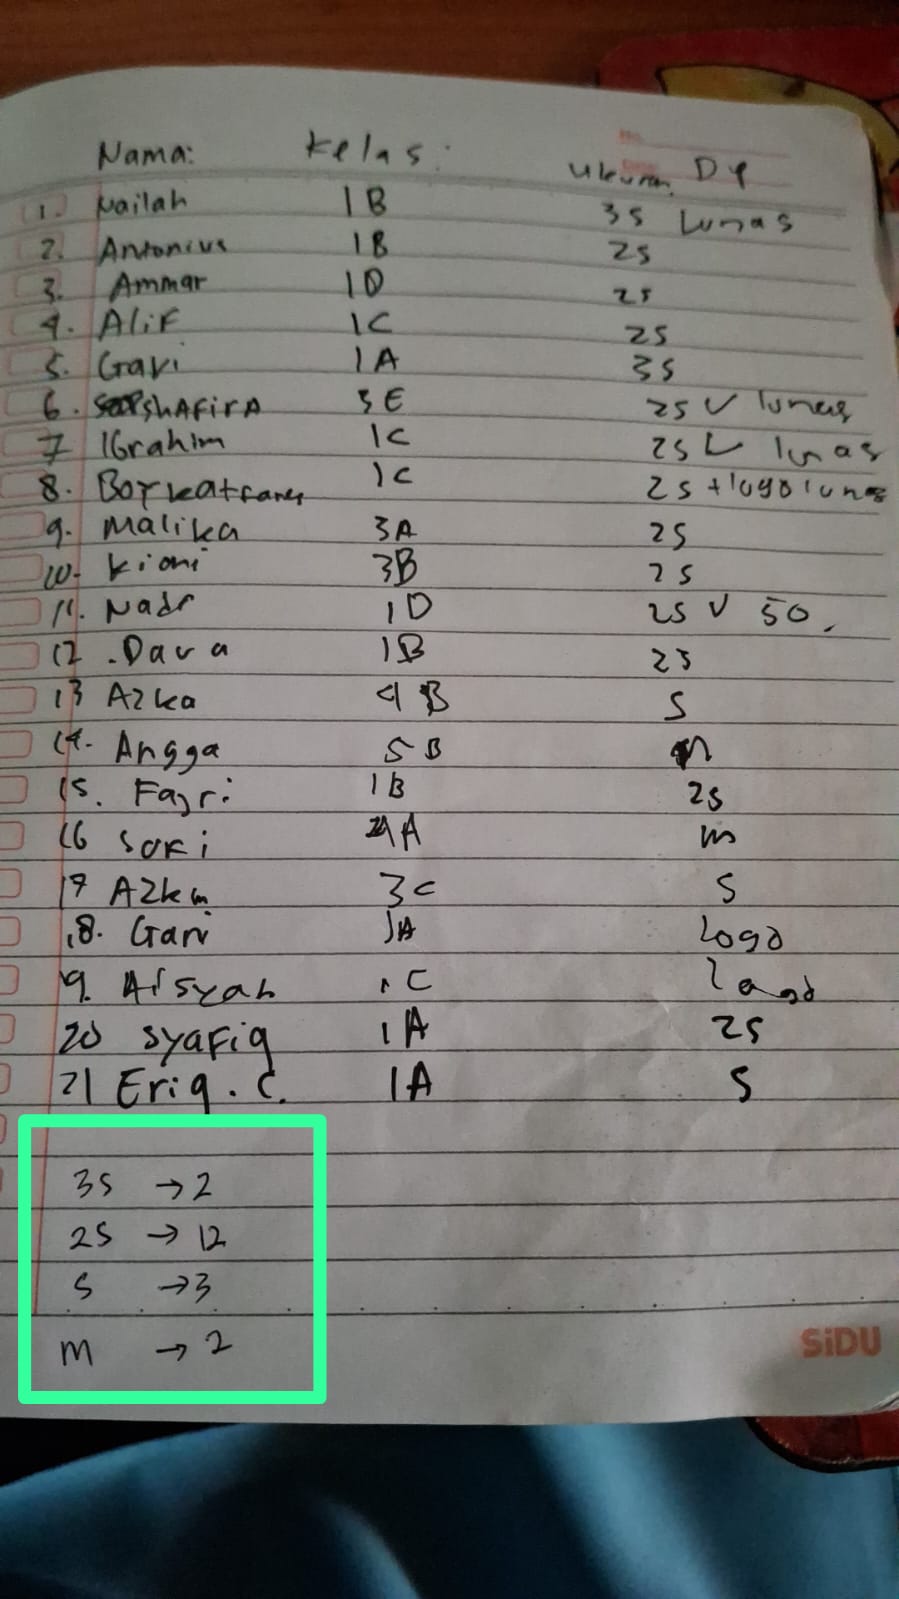 Nama: Kelas: Ukuran. DP
1. Nailah 1B 3S Lunas
2. Antonius 1B 2S
3. Ammar 1D 2S
4. Alif 1C 2S
5. Gavi 1A 3S
6. ShAFirA 3E 2S V lunas
7 IBrahim 1C 2S V lunas
8. 1C 2S + logo lunas
9. Malika 3A 2S
10. Kioni 3B 2S
11. Nadr 1D 2S V 50.
12. Dava 1B 2S
13 Azka 4B S
14. Angga 5B m
15. Fajri 1B 2S
16 Soki A m
17 Azka 3C S
18. Gavi 1A Logo
19. Aisyah 1C Logo
20 Syafiq 1A 2S
21 Eriq. C. 1A S
3S → 2
2S → 12
S → 3
m → 2
SiDU